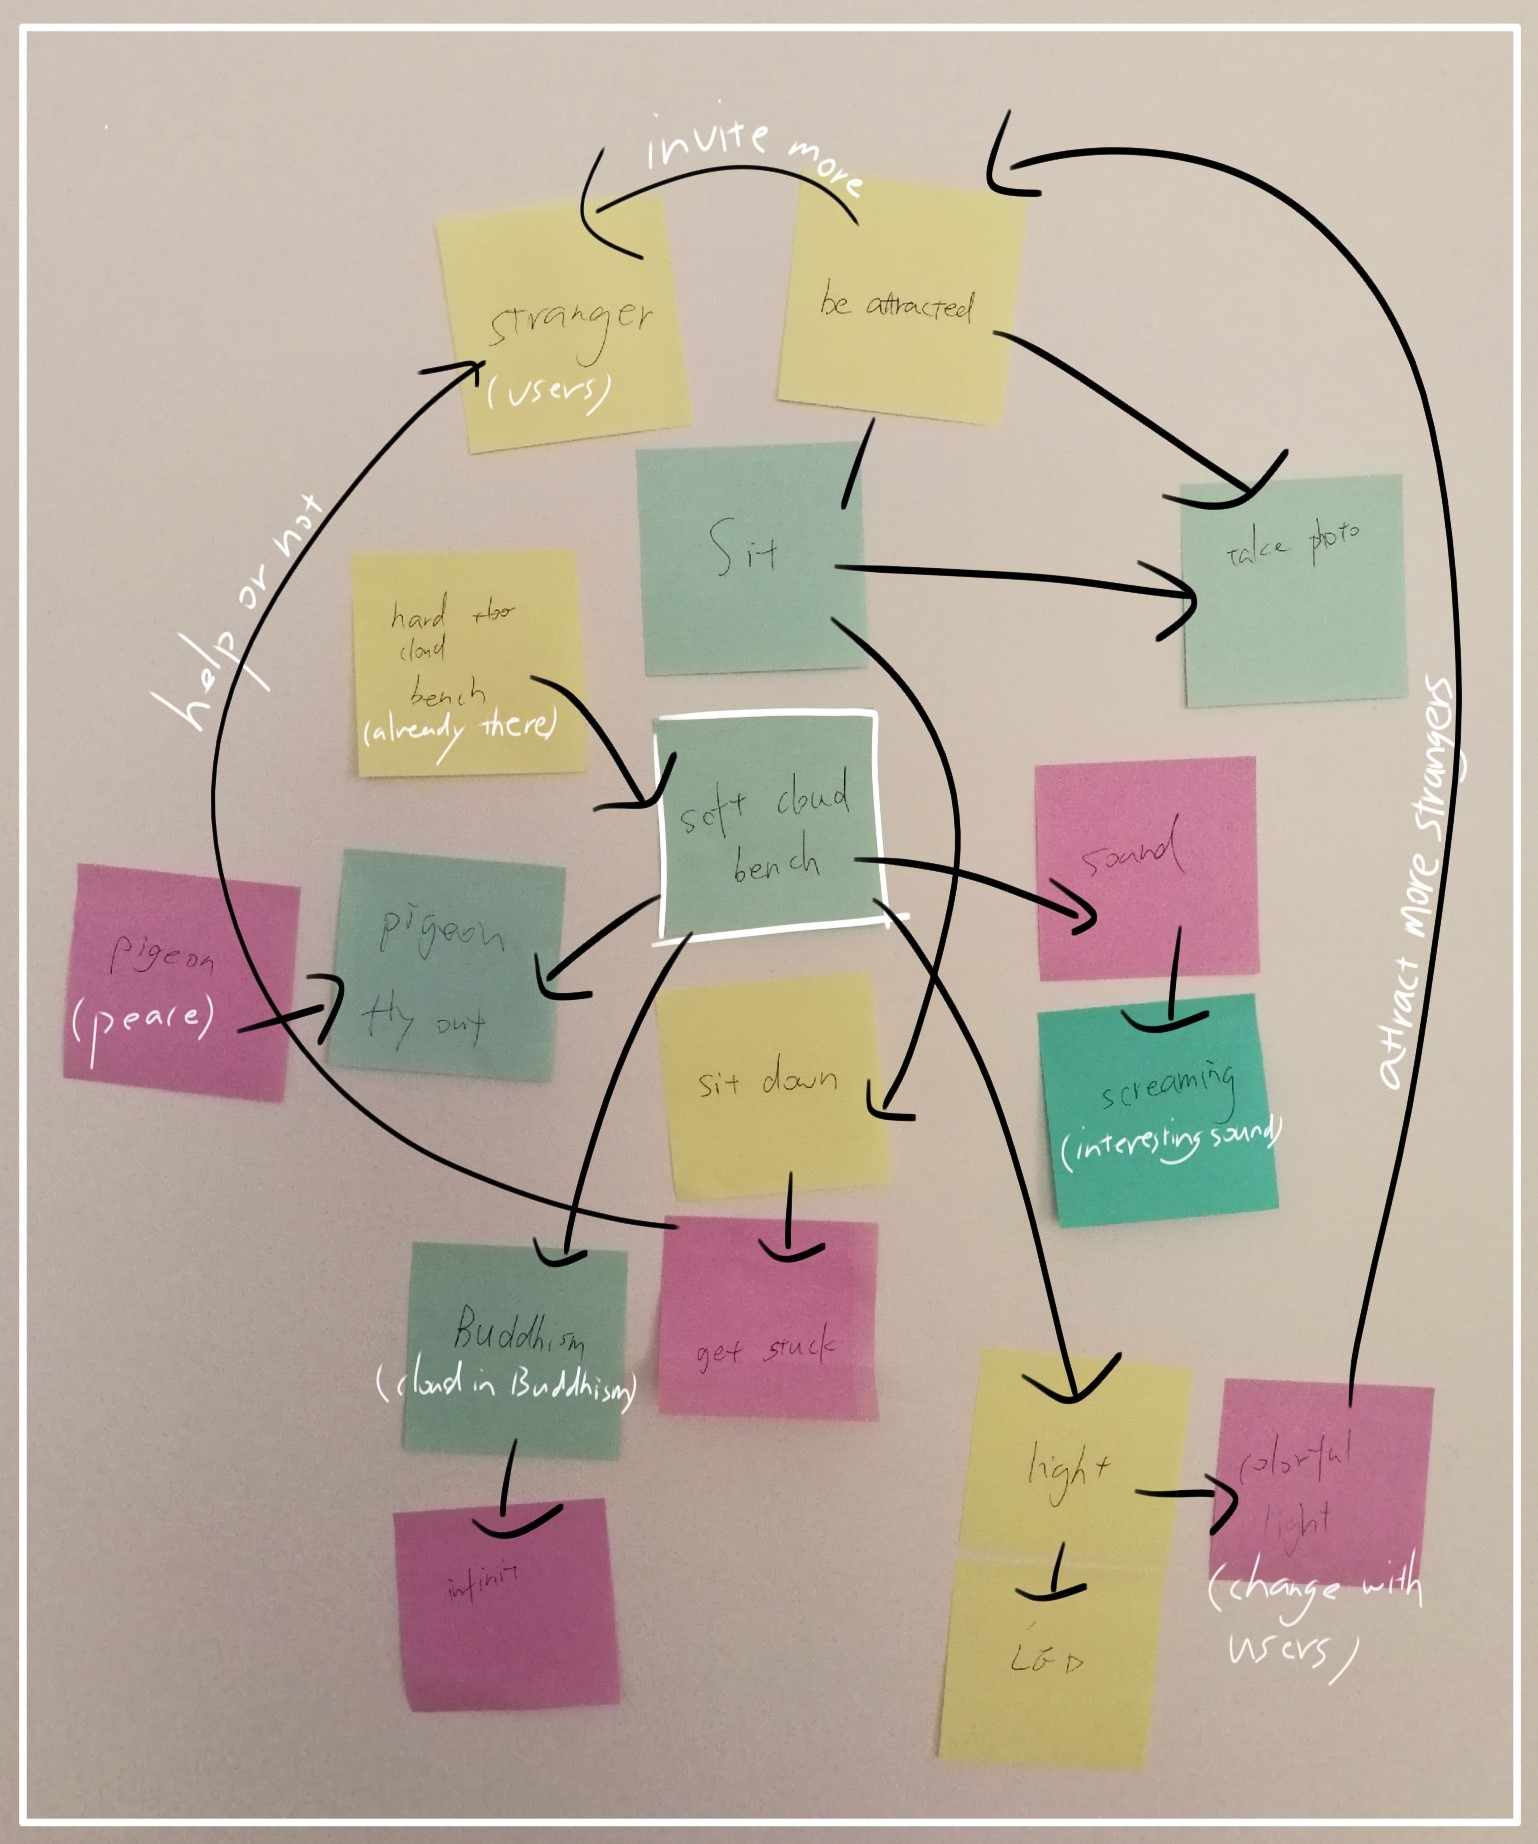 invite more
stranger
(users)
be attracted
Sit
take photo
help or not
hard
cloud
bench
(already there)
soft cloud
bench
sound
attract more strangers
pigeon
(peace)
pigeon
fly out
sit down
screaming
(interesting sound)
Buddhism
(cloud in Buddhism)
get stuck
light
colorful
light
(change with
users)
infinit
LED